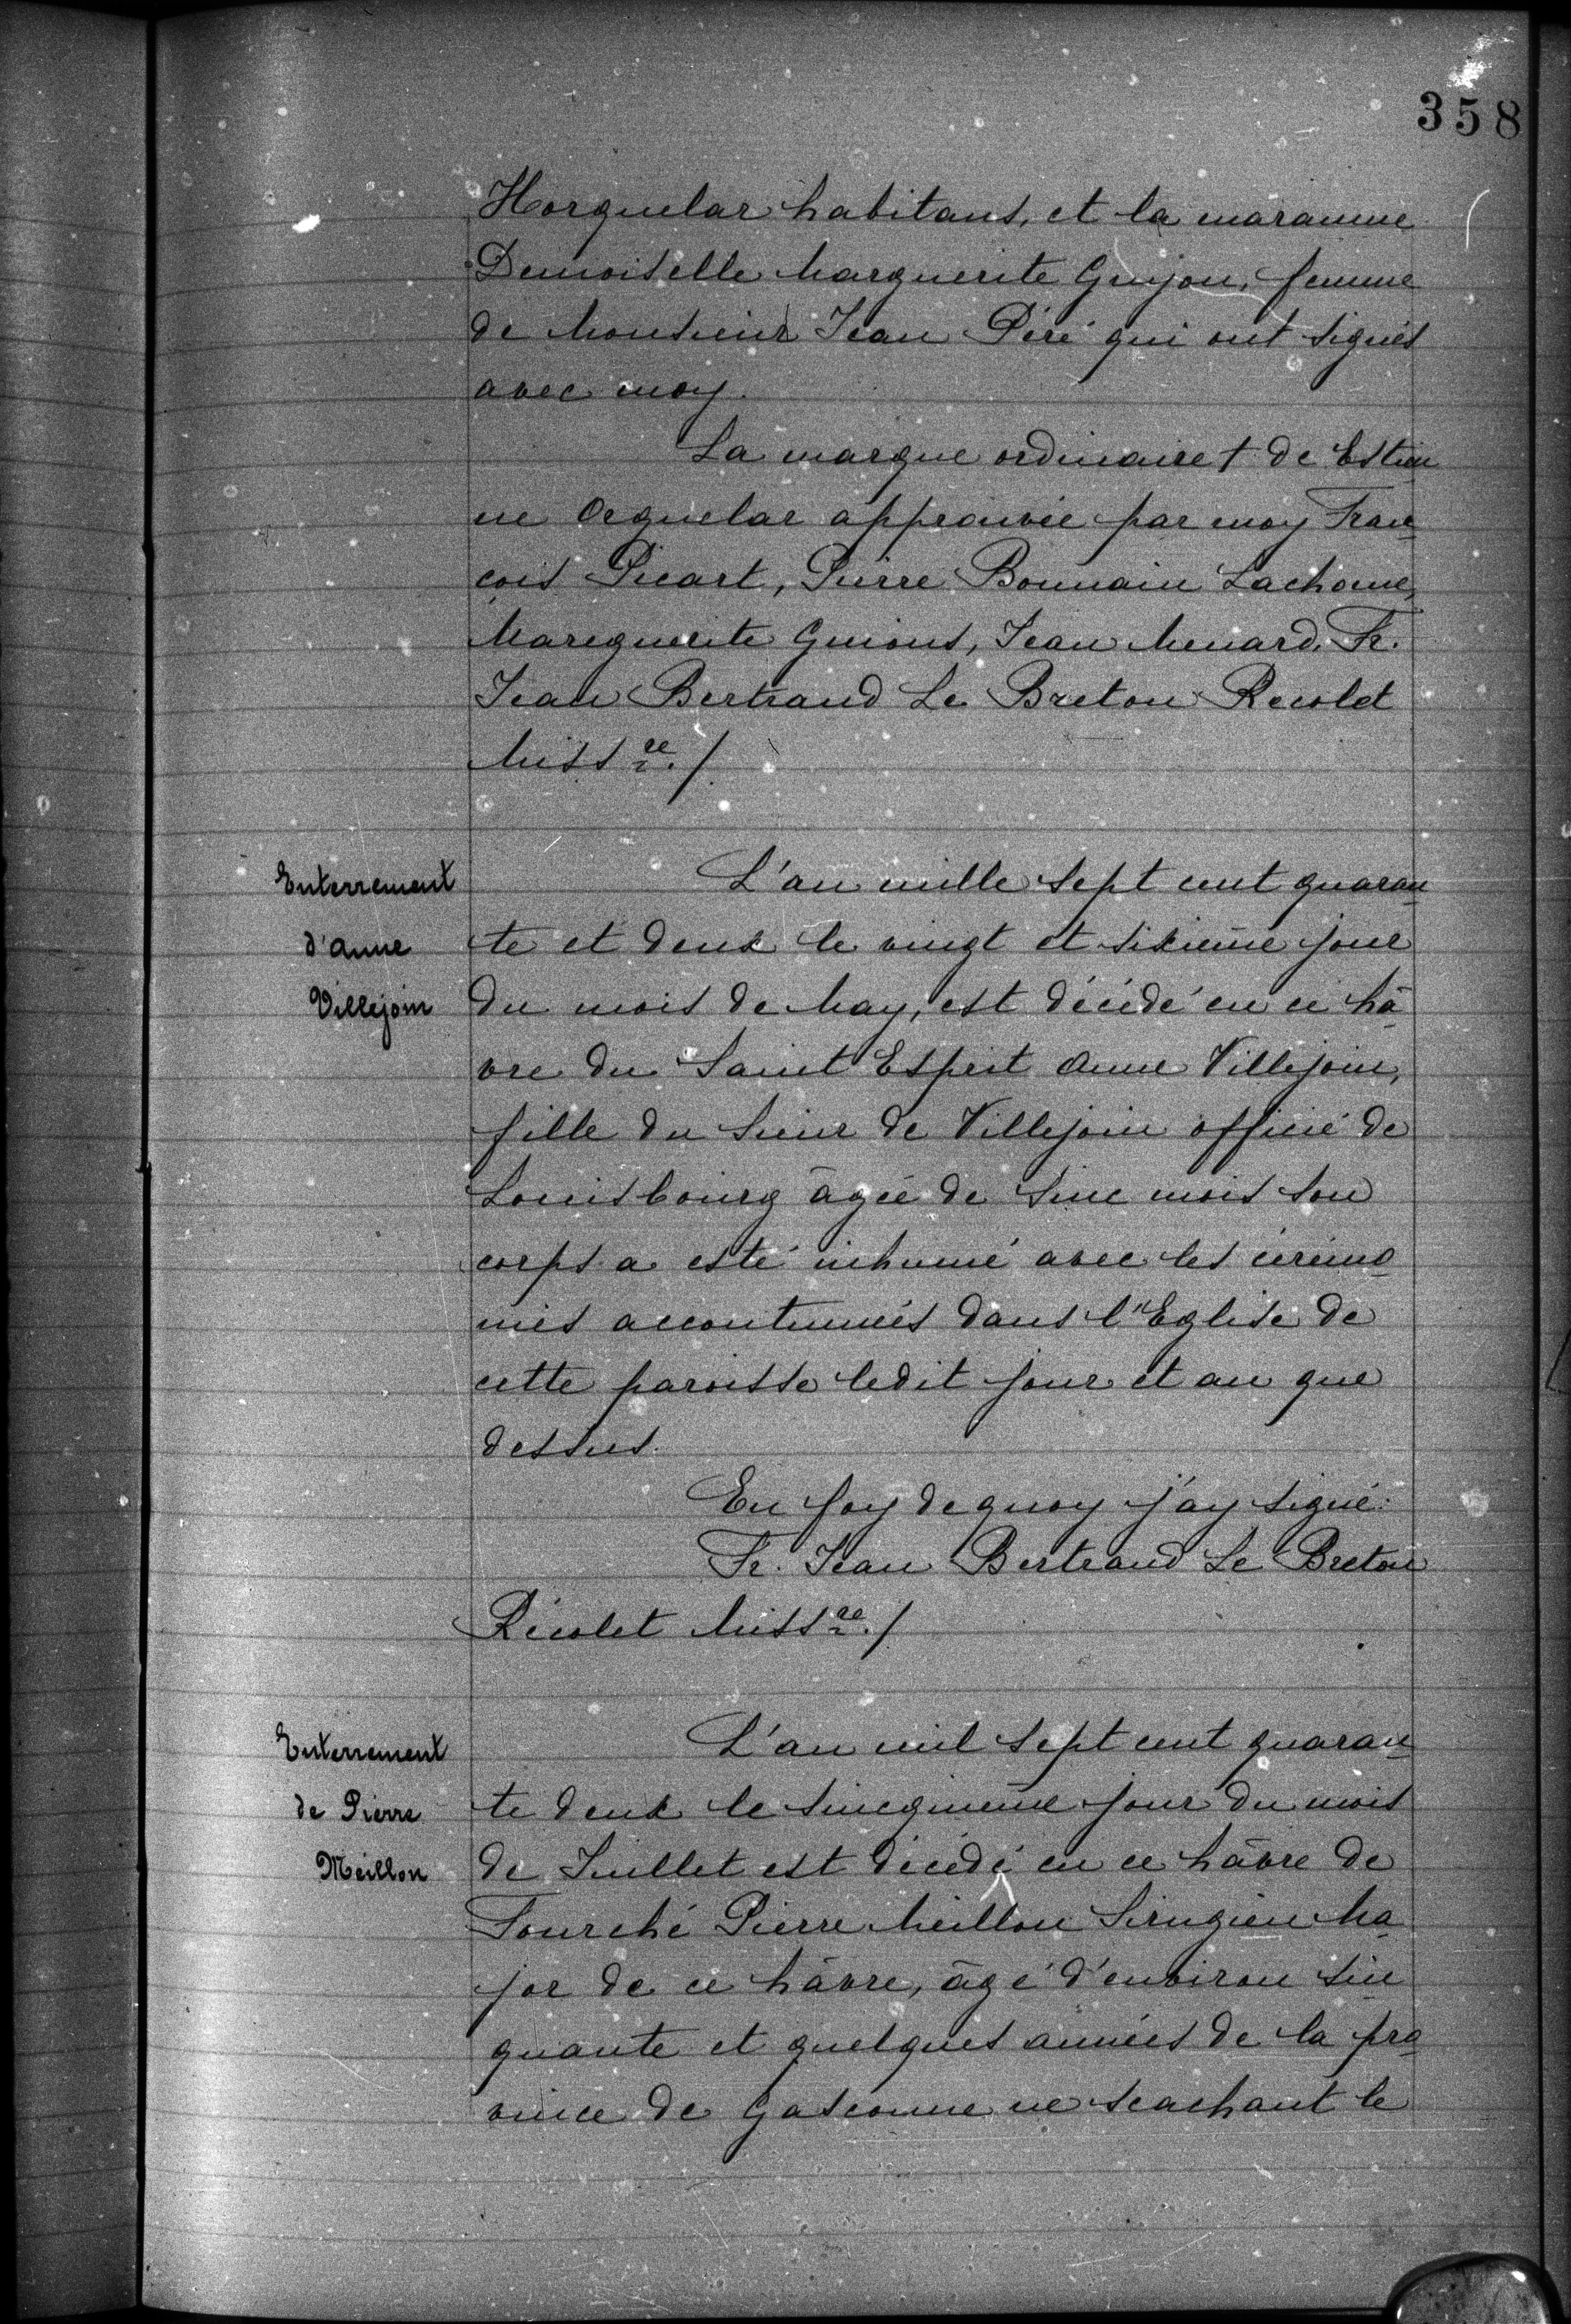 358
Horguelar habitans, et la maramne
Demoiselle Marguerite Guijon, femme
de Monsieur Jean Péré qui ont signés
avec moy.
La marque ordinaire † de Estien
ne Orguelar approuvée par moy Fran-
çois Picart, Pierre Bonnain Lachaume,
Mareguerite Guions, Jean Menard, Fr.
Jean Bertrand Le Breton Recolet
Miss re./
Enterrement
d'Anne
Villejoin
L'an mille sept cent quaran-
te et deux le vingt et sixième jour
du mois de May, est décédé en ce hâ-
vre du Saint Esprit Anne Villejoin,
fille du Sieur de Villejoin officié de
Louisbourg âgée de sinc mois son
corps a esté inhumé avec les cérémo-
nies accoutumées dans l'Eglise de
cette paroisse ledit jour et an que
dessus.
En foy de quoy j'ay signé:
Fr. Jean Bertrand Le Breton
Récolet Miss re./
Enterrement
de Pierre
Meillon
L'an mil sept cent quaran-
te deux le sincquième jour du mois
de Juillet est décédé en ce hâvre de
Fourché Pierre Meillon Sirugien Ma-
jor de ce hâvre, âgé d'environ sin
quante et quelques années de la pro-
vince de Gasconne ne scachant le